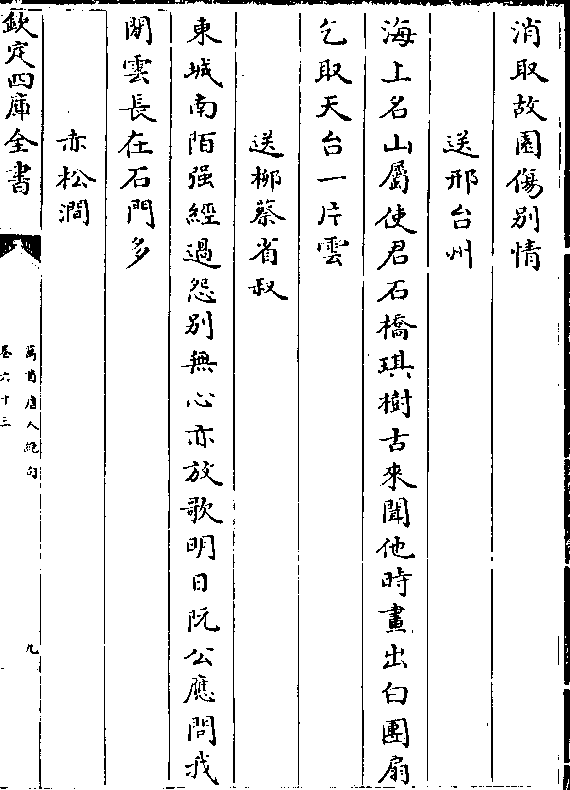 消取故園傷别情
送邢台州
海上名山屬使君石橋琪樹古來聞他時畫出白團扇
乞取天台一片雲
送柳蔡省叔
東城南陌强經過怨别無心亦放歌明日阮公應問我
閑雲長在石門多
赤松澗
欽定四庫全書
萬首唐人絶句
卷六十三
九